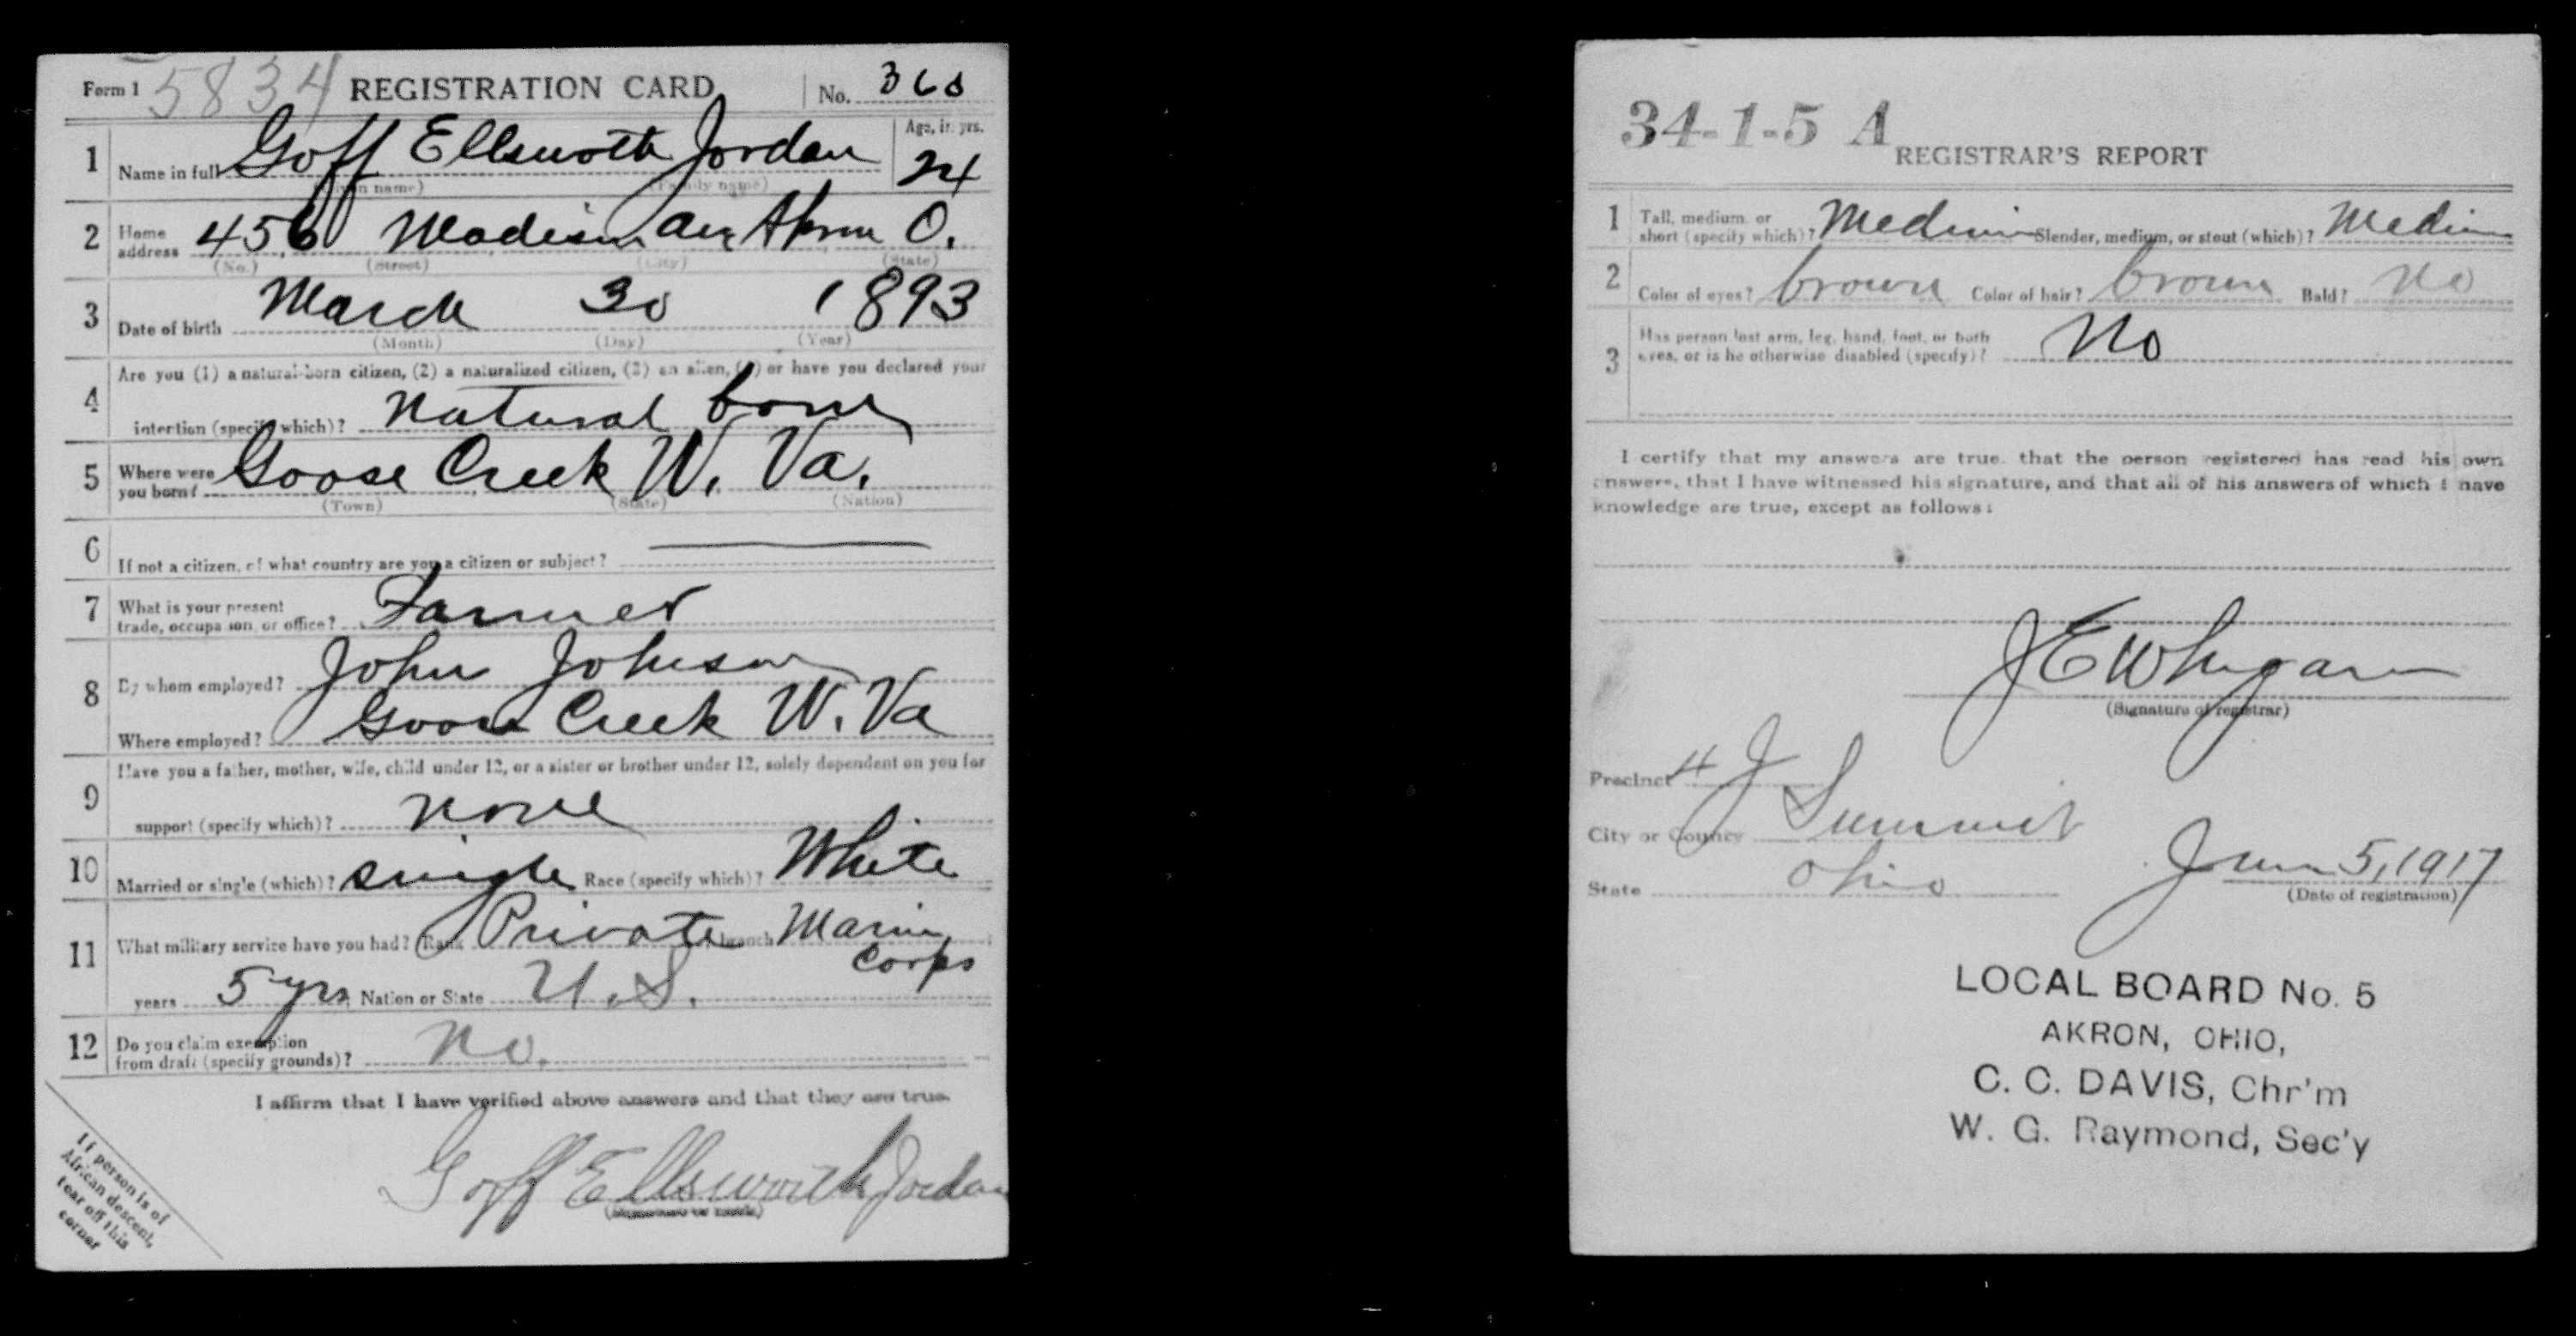 Form 1 5834 REGISTRATION CARD No. 368
1 Name in full Goff Ellsworth Jordan Age, in yrs. 24
(Given name) (Family name)
2 Home address 456 Madison Ave Akron O.
(No.) (Street) (City) (State)
3 Date of birth March 30 1893
(Month) (Day) (Year)
4 Are you (1) a natural-born citizen, (2) a naturalized citizen, (3) an alien, (4) or have you declared your
intention (specify which)? Natural born
5 Where were you born? Goose Creek W. Va.
(Town) (State) (Nation)
6 If not a citizen, of what country are you a citizen or subject?
7 What is your present
trade, occupation, or office? Farmer
8 By whom employed? John Johnson
Where employed? Goose Creek W. Va
9 Have you a father, mother, wife, child under 12, or a sister or brother under 12, solely dependent on you for
support (specify which)? None
10 Married or single (which)? Single Race (specify which)? White
11 What military service have you had? Rank Private branch Marine
Corps
years 5 yrs Nation or State U.S.
12 Do you claim exemption
from draft (specify grounds)? No.
I affirm that I have verified above answers and that they are true.
Goff Ellsworth Jordan
(Signature or mark)
If person is of
African descent,
tear off this
corner
34-1-5 A
REGISTRAR'S REPORT
1 Tall, medium, or
short (specify which)? Medium Slender, medium, or stout (which)? Medium
2 Color of eyes? brown Color of hair? brown Bald? No
3 Has person lost arm, leg, hand, foot, or both
eyes, or is he otherwise disabled (specify)? No
I certify that my answers are true, that the person registered has read his own
answers, that I have witnessed his signature, and that all of his answers of which I have
knowledge are true, except as follows:
J E Whigam
(Signature of registrar)
Precinct 4 J
City or County Summit
State Ohio June 5, 1917
(Date of registration)
LOCAL BOARD No. 5
AKRON, OHIO,
C. C. DAVIS, Chr'm
W. G. Raymond, Sec'y